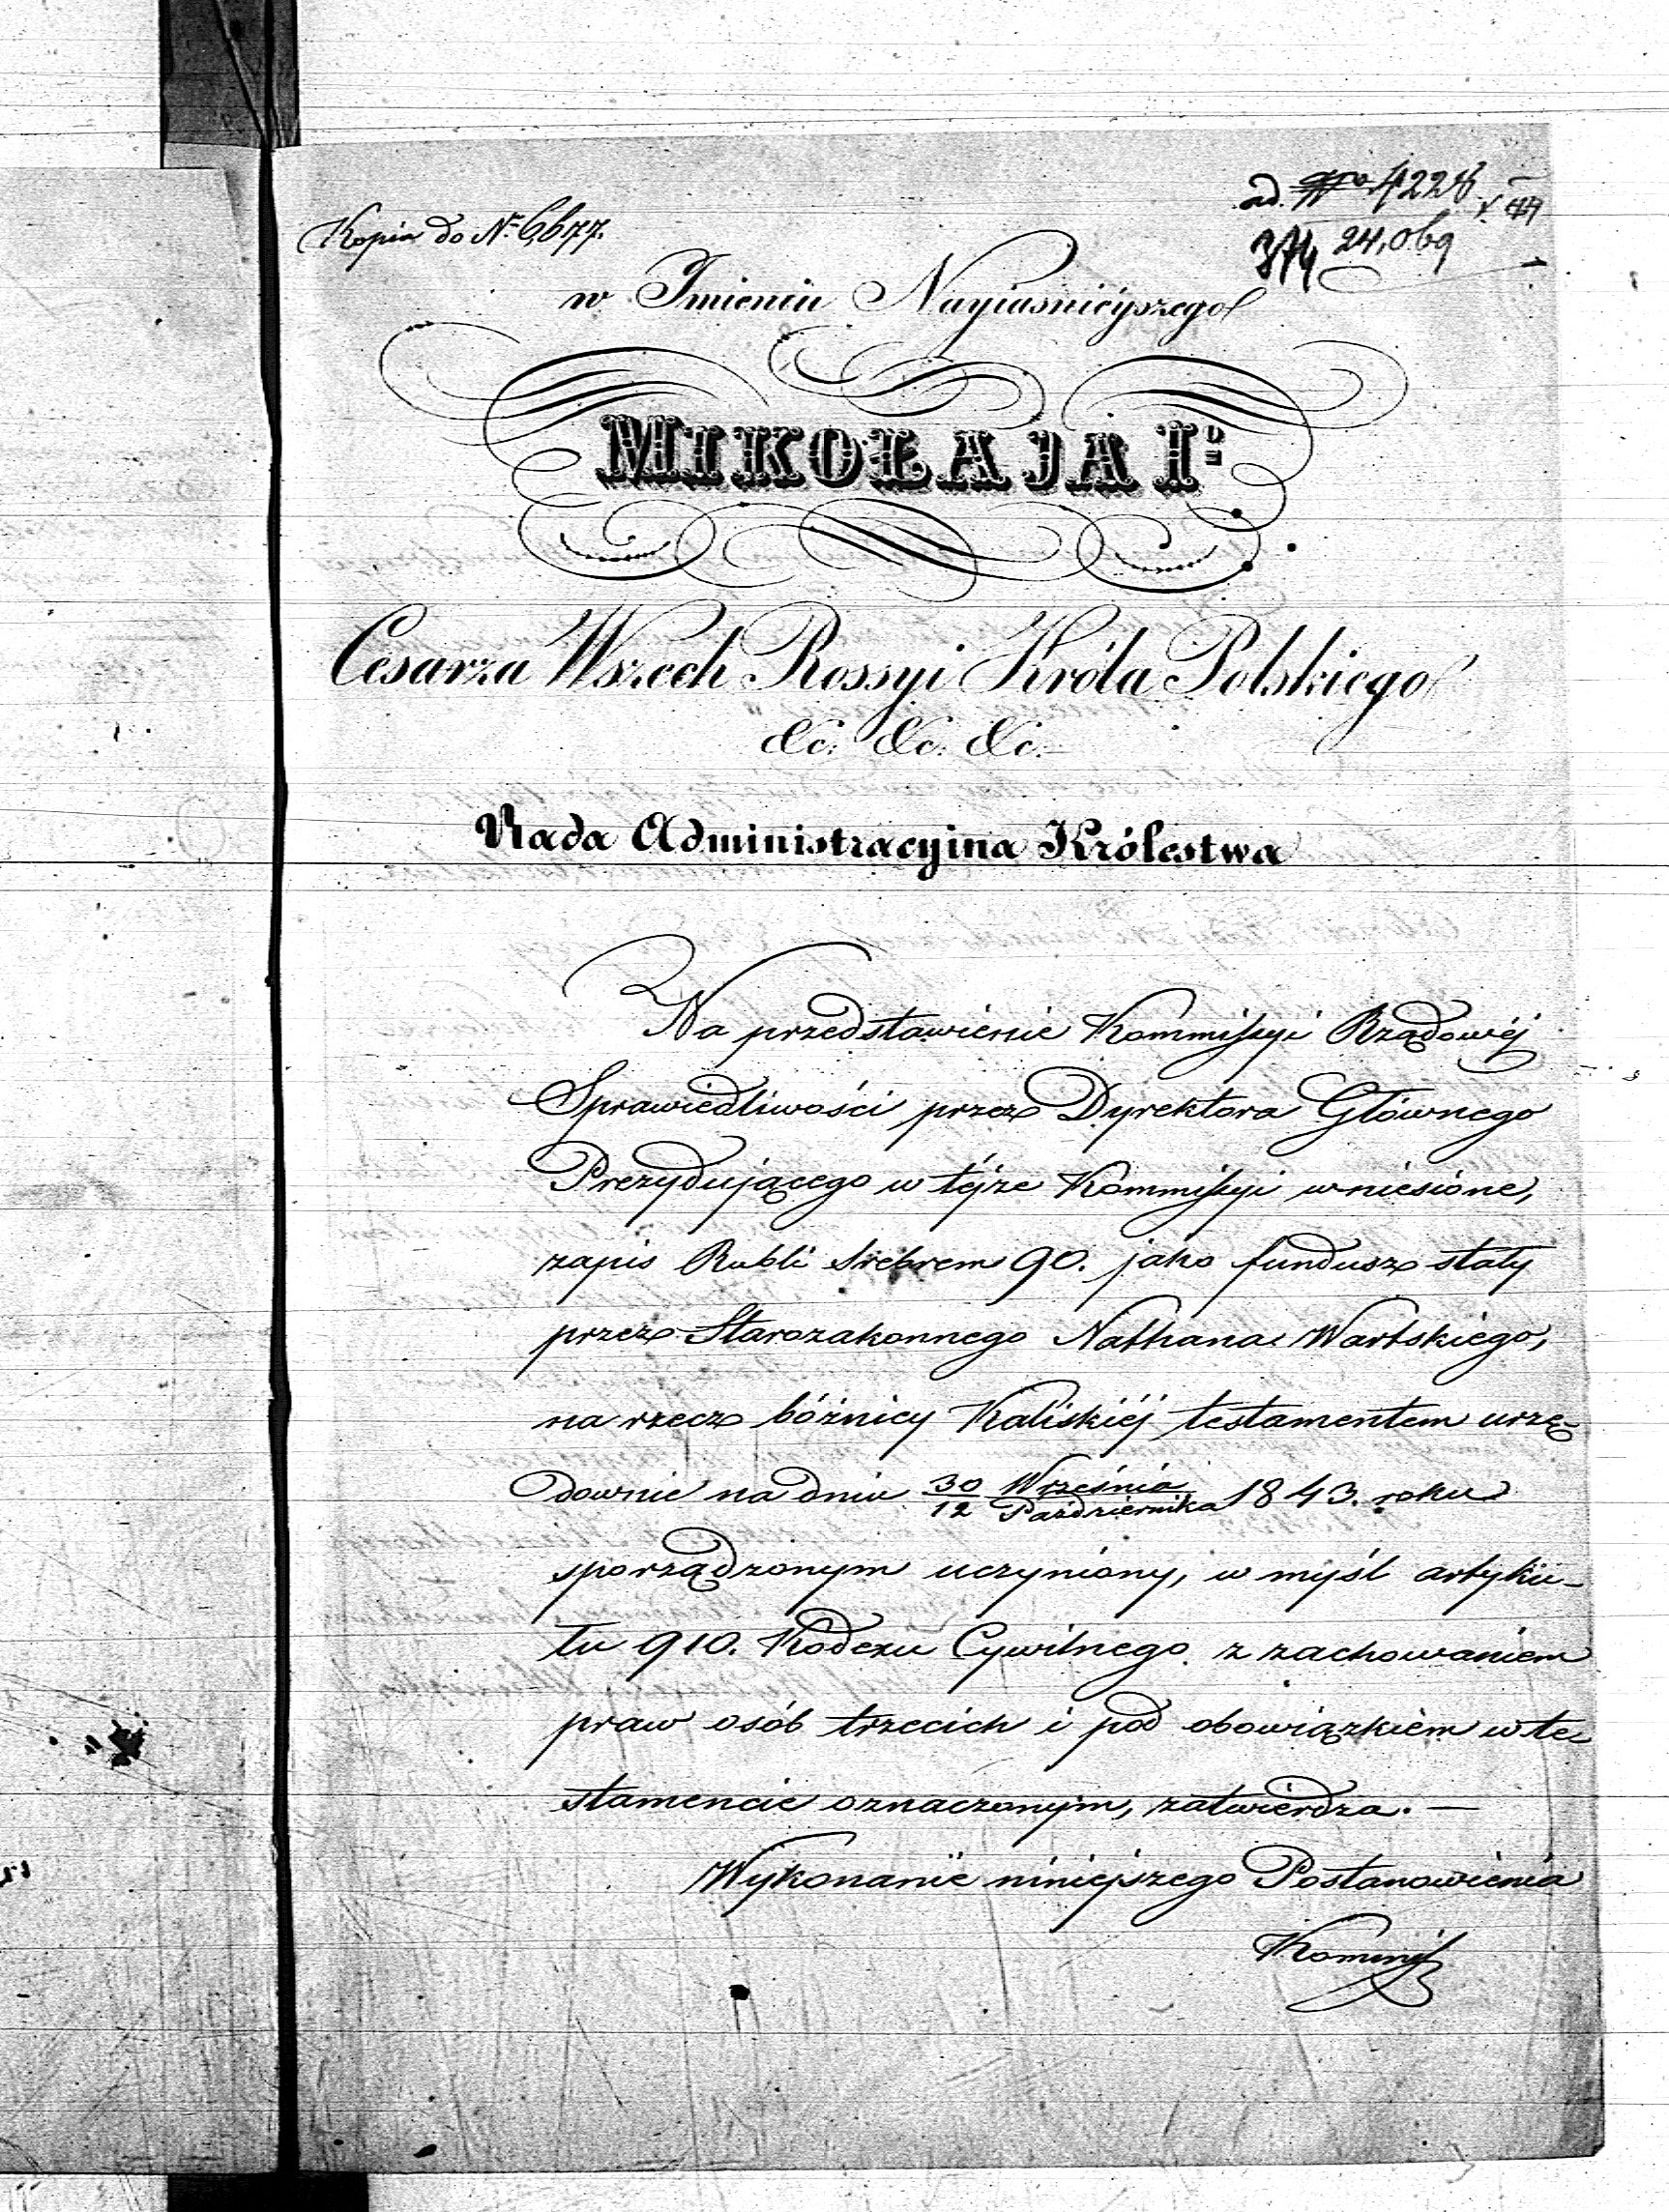 Kopia do Nr 6,677.
ad. 4228
374 24,069
w Imieniu Nayiaśnieyszego
MIKOŁAJA Igo
Cesarza Wszech Rossyi Króla Polskiego
&c. &c. &c.
Rada Administracyina Królestwa
Na przedstawienie Kommissyi Rządowéj
Sprawiedliwości przez Dyrektora Głównego
Prezydującego w téjże Kommissyi wniesione,
zapis Rubli srebrem 90. jako fundusz stały
przez Starozakonnego Nathana Wartskiego,
na rzecz bóżnicy Kaliskiéj testamentem urzę-
downie na dniu 30 Września / 12 Października 1843. roku
sporządzonym uczyniony, w myśl artyku-
łu 910. Kodexu Cywilnego z zachowaniem
praw osób trzecich i pod obowiązkiem w te-
stamencie oznaczonym, zatwierdza. —
Wykonanie niniejszego Postanowienia
Kommis